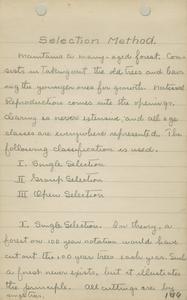 Selection Method.
Maintains a many-aged forest. Con-
sists in taking out the old trees and leav-
ing the younger ones for growth. Natural
Reproduction comes into the openings,
clearing is never extensive, and all age
classes are everywhere represented. The
following classification is used.
I Single Selection
II Group Selection
III Open Selection
I. Single Selection. In theory, a
forest on 100 year rotation would have
cut out the 100 year trees each year. Such
a forest never exists, but it illustrates
the principle. All cuttings are by
single trees.